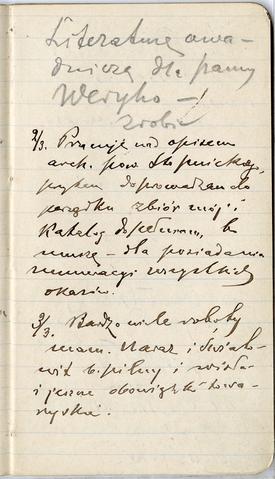 Literaturę owa-
dniczą dla panny
Weryho —
zrobić
2/3. Pracuję nad opisem
arch. pow. Słupeckiego,
przytem doprowadzam do
porządku zbiór mój i
Katalog do pełna, bo
muszę – dla posiadania
numeracyi wszystkich
okazów.
3/3. Bardzo wiele roboty
mam. Naraz i
i pilny i
i jeszcze obowiązki towa-
rzyskie.